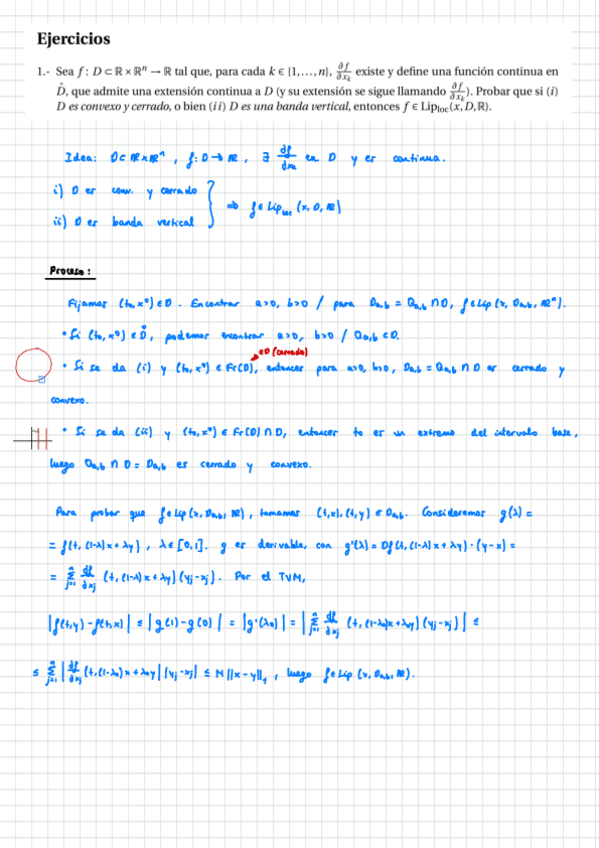 Ejercicios
1.- Sea f : D ⊂ ℝ × ℝⁿ → ℝ tal que, para cada k ∈ {1,…,n}, ∂f/∂xₖ existe y define una función continua en
D̊, que admite una extensión continua a D (y su extensión se sigue llamando ∂f/∂xₖ). Probar que si (i)
D es convexo y cerrado, o bien (ii) D es una banda vertical, entonces f ∈ Lip_loc(x, D, ℝ).
Idea: D⊂ ℝ×ℝⁿ, f: D→ℝ, ∃ ∂f/∂xₖ en D y es continua.
i) D es conv. y cerrado
ii) D es banda vertical } ⇒ f ∈ Lip_loc (x, D, ℝ)
Proceso:
Fijamos (t₀, x⁰) ∈ D. Encontrar a>0, b>0 / para D_a,b = Q_a,b ∩ D, f ∈ Lip (x, D_a,b, ℝⁿ).
• Si (t₀, x⁰) ∈ D̊, podemos encontrar a>0, b>0 / Q_a,b ⊂ D.
∈ D (cerrado)
• Si se da (i) y (t₀, x⁰) ∈ Fr(D), entonces para a>0, b>0, D_a,b = Q_a,b ∩ D es cerrado y
convexo.
• Si se da (ii) y (t₀, x⁰) ∈ Fr(D) ∩ D, entonces t₀ es un extremo del intervalo base,
luego Q_a,b ∩ D = D_a,b es cerrado y convexo.
Para probar que f ∈ Lip (x, D_a,b, ℝ), tomamos (t,x), (t,y) ∈ D_a,b. Consideremos g(λ) =
= f(t, (1-λ)x + λy), λ ∈ [0,1]. g es derivable, con g'(λ) = Df(t, (1-λ)x + λy)·(y-x) =
= Σⁿⱼ₌₁ ∂f/∂xⱼ (t, (1-λ)x + λy)(yⱼ-xⱼ). Por el TVM,
|f(t,y) - f(t,x)| ≤ |g(1) - g(0)| = |g'(λ₀)| = |Σⁿⱼ₌₁ ∂f/∂xⱼ (t, (1-λ₀)x + λ₀y)(yⱼ-xⱼ)| ≤
≤ Σⁿⱼ₌₁ |∂f/∂xⱼ (t, (1-λ₀)x + λ₀y| |yⱼ-xⱼ| ≤ M ||x-y||₁, luego f ∈ Lip (x, D_a,b, ℝ).